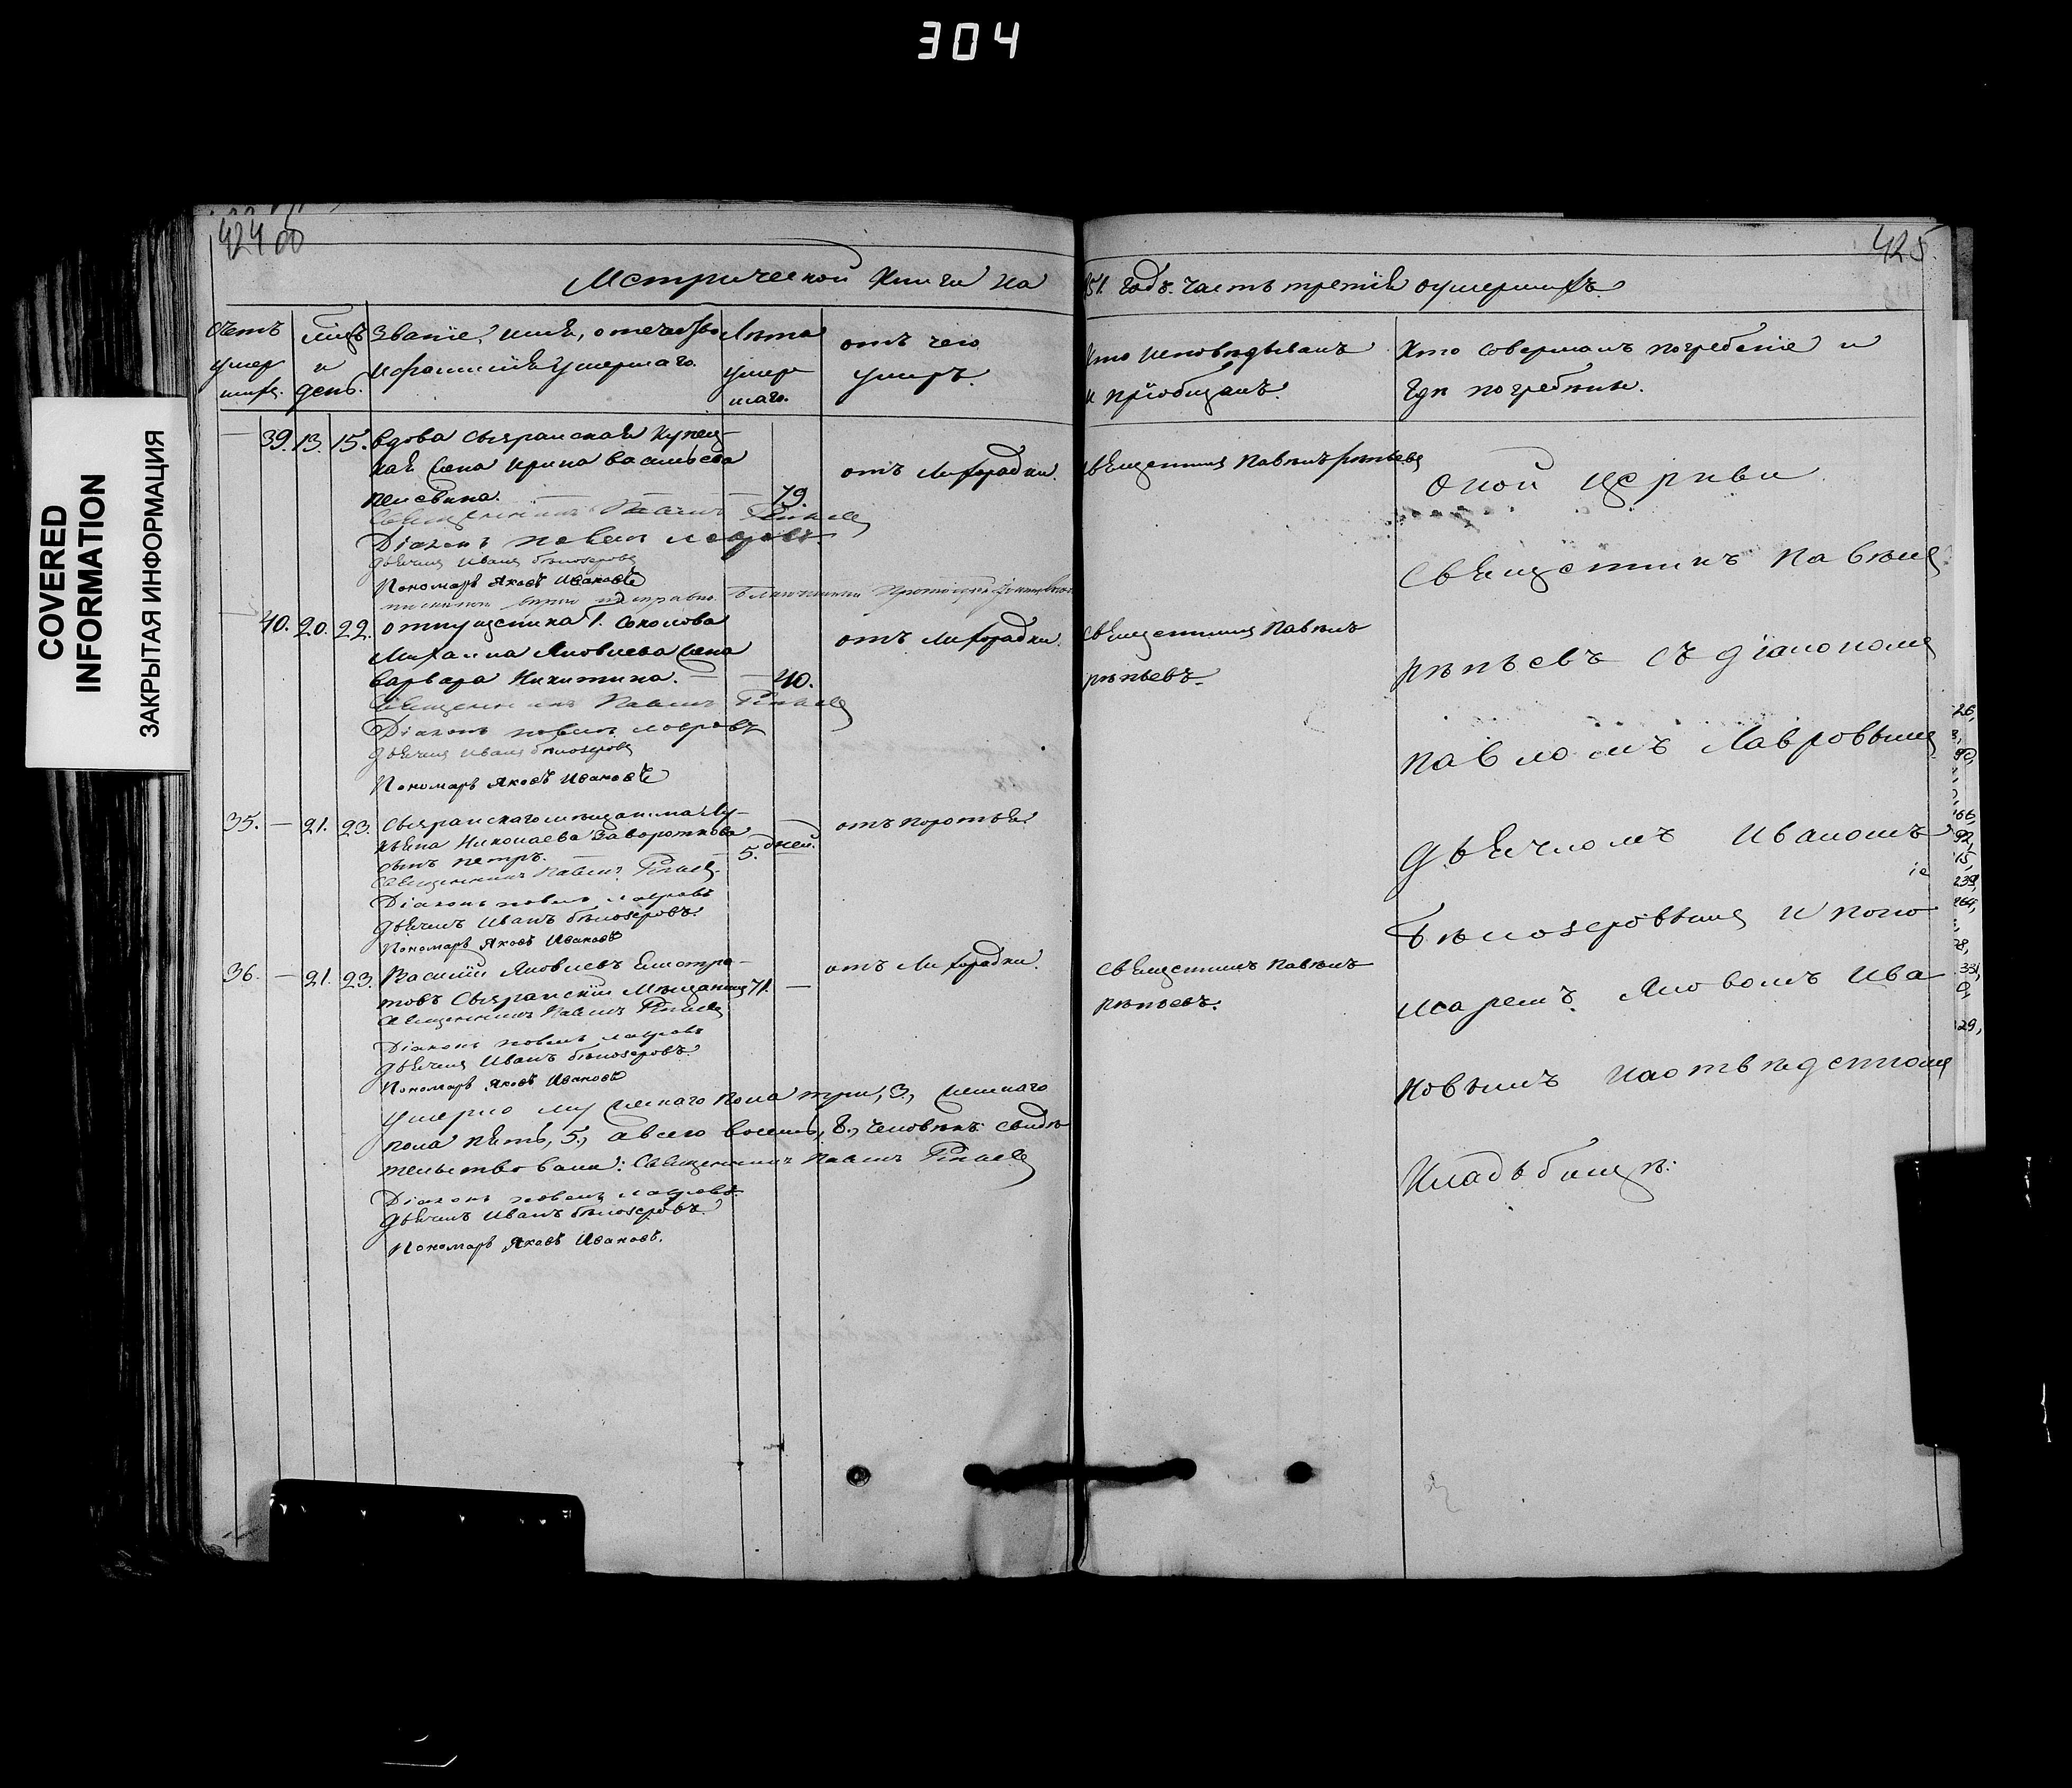 304
COVERED
INFORMATION
ЗАКРЫТАЯ ИНФОРМАЦИЯ
424
425.
Метрической Книги на
851. годъ. Часть третія оумершихъ.
Счетъ умершихъ.
Мѣсяцъ и день.
Званіе, имя, отечество
и фамилія умершаго.
Лѣта умершаго.
отъ чего
умеръ.
Кто исповѣдывалъ
и пріобщалъ.
Кто совершалъ погребеніе и
гдѣ погребены.
39. 13. 15. вдова Сызранская Купец-
кая жена Ирина васильева
79.
отъ Лихорадки.
священникъ Павелъ рѣпьевъ
Священникъ Павелъ Рѣпьевъ
Діаконъ павелъ лавровъ
дьячекъ Иванъ бѣлозеровъ
Пономарь Яковъ Ивановъ
40. 20. 22. отпущеника Г. Соколова
Михаила Яковлева жена
варвара Никитина. 40.
отъ Лихорадки.
священникъ Павелъ
рѣпьевъ.
Священникъ Павелъ Рѣпьевъ
Діаконъ павелъ лавровъ
дьячекъ Иванъ бѣлозеровъ
Пономарь Яковъ Ивановъ
35. — 21. 23. Сызранскаго мѣщанина Лу-
кьяна Николаева Завороткова
сынъ петръ. 5. дней.
отъ поротья
Священникъ Павелъ Рѣпьевъ
Діаконъ павелъ лавровъ
дьячекъ Иванъ бѣлозеровъ.
Пономарь Яковъ Ивановъ
36. — 21. 23. Василій Яковлевъ Елистра-
товъ Сызранскій Мѣщанинъ 71. —
отъ Лихорадки.
священникъ Павелъ
рѣпьевъ.
Священникъ Павелъ Рѣпьевъ
Діаконъ павелъ лавровъ
дьячекъ Иванъ бѣлозеровъ.
Пономарь Яковъ Ивановъ
умерло мужескаго пола три, 3., женскаго
пола пять, 5., а всего восемь, 8., человѣкъ свидѣ
тельствовали: Священникъ Павелъ Рѣпьевъ
Діаконъ павелъ лавровъ.
дьячекъ Иванъ бѣлозеровъ.
Пономарь Яковъ Ивановъ.
оной церкви
священникъ Павелъ
рѣпьевъ съ діакономъ
павломъ Лавровымъ
дьячкомъ Иваномъ
Бѣлозеровымъ и поно
маремъ Яковомъ Ива
новымъ на отведенномъ
Кладьбищѣ.